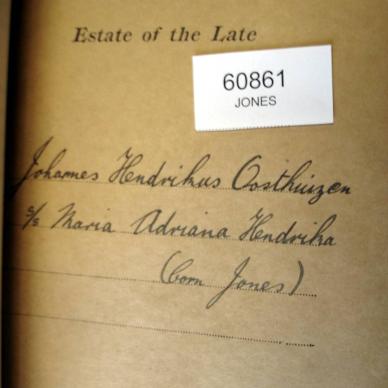 Estate of the Late
60861
JONES
Johannes Hendrikus Oosthuizen
s/s Maria Adriana Hendrika
(born Jones)